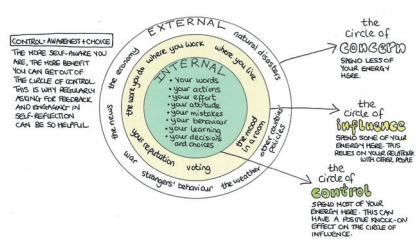 CONTROL: AWARENESS + CHOICE
THE MORE SELF-AWARE YOU
ARE, THE MORE BENEFIT
YOU CAN GET OUT OF
THE CIRCLE OF CONTROL.
THIS IS WHY REGULARLY
ASKING FOR FEEDBACK
AND ENGAGING IN
SELF-REFLECTION
CAN BE SO HELPFUL.
EXTERNAL
the news
the economy
natural disasters
other countries'
policies
the weather
strangers' behaviour
war
the work you do
where you work
where you live
the mood
in a room
voting
your reputation
INTERNAL
• your words
• your actions
• your effort
• your attitude
• your mistakes
• your behaviour
• your learning
• your decisions
and choices
the
circle of
concern
SPEND LESS OF
YOUR ENERGY
HERE.
the
circle of
influence
SPEND SOME OF YOUR
ENERGY HERE. THIS
RELIES ON YOUR RELATIONS
WITH OTHER PEOPLE
the
circle of
control
SPEND MOST OF YOUR
ENERGY HERE. THIS CAN
HAVE A POSITIVE KNOCK-ON
EFFECT ON THE CIRCLE OF
INFLUENCE.